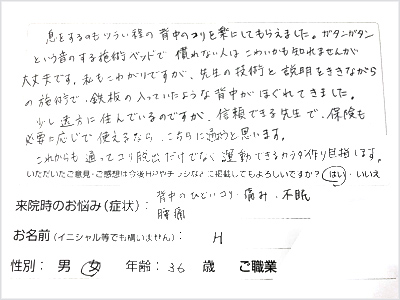 息をするのもつらい程の背中のコリを楽にしてもらえました。ガタンガタン
という音のする施術ベッドで慣れない人はこわいかも知れませんが
大丈夫です。私もこわがりですが、先生の技術と説明をききながら
の施術で、鉄板の入っていたような背中がほぐれてきました。
少し遠方に住んでいるのですが、信頼できる先生で、保険も
必要に応じて使えるなら、こちらに通おうと思います。
これからも通ってコリ脱出だけでなく運動できるカラダ作り目指します。
いただいたご意見・ご感想は今後HPやチラシなどに掲載してもよろしいですか? はい ・ いいえ
背中のひどいコリ・痛み・不眠
来院時のお悩み(症状): 腰痛
お名前(イニシャル等でも構いません): H
性別: 男 女 年齢: 36 歳 ご職業